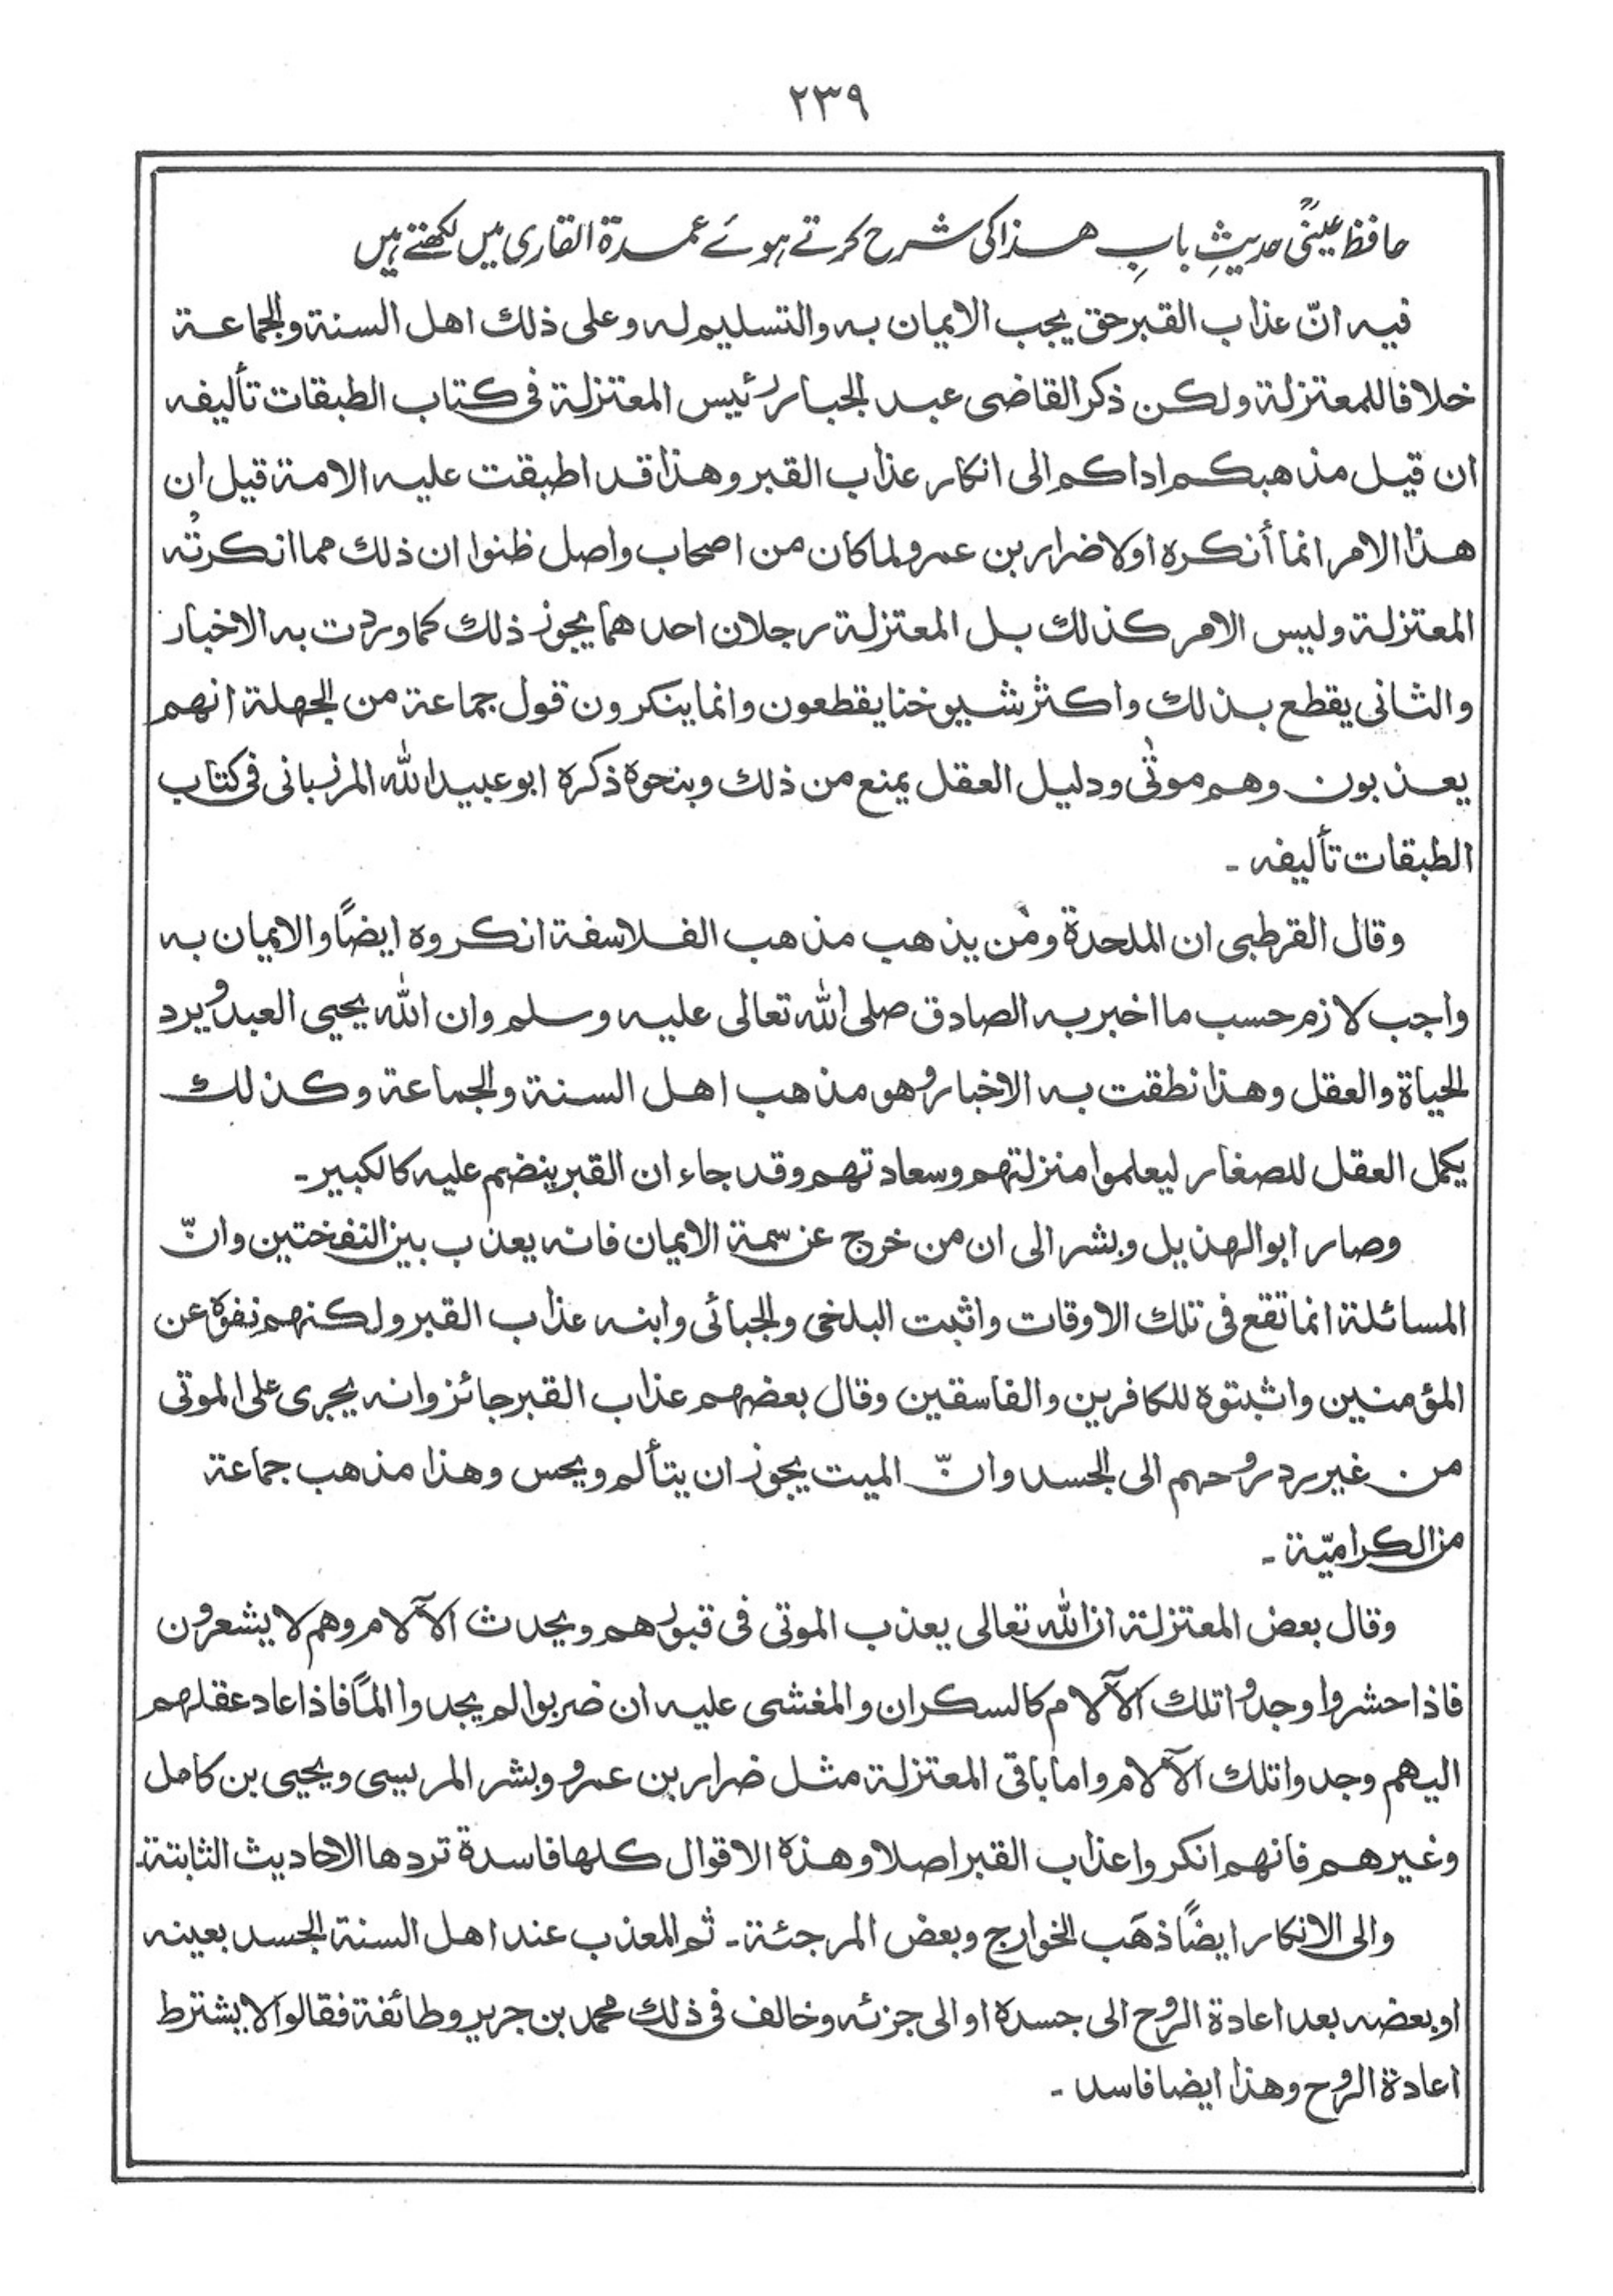 ۲۳۹
حافظ عینیؒ حدیثِ بابِ ھـذا کی شرح کرتے ہوئے عمدۃ القاری میں لکھتے ہیں
فیہ انّ عذاب القبر حق یجب الایمان بہ والتسلیم لہ وعلی ذلك اھل السنۃ والجماعۃ
خلافا للمعتزلۃ ولکن ذکر القاضی عبد الجبار رئیس المعتزلۃ فی کتاب الطبقات تألیفہ
ان قیل مذھبکم اداکم الی انکار عذاب القبر وھذا قد اطبقت علیہ الامۃ قیل ان
ھذا الامر انما أنکرہ اولا ضرار بن عمرو لما کان من اصحاب واصل ظنوا ان ذلك مما انکرتْہ
المعتزلۃ ولیس الامر کذلك بل المعتزلۃ رجلان احدھما یجوز ذلك کما وردت بہ الاخبار
والثانی یقطع بذلك واکثر شیوخنا یقطعون وانما ینکرون قول جماعۃ من الجھلۃ انھم
یعذبون وھم موتٰی ودلیل العقل یمنع من ذلك وبنحوہ ذکرہ ابو عبید اللہ المرزبانی فی کتاب
الطبقات تألیفہ ۔
وقال القرطبی ان الملحدۃ ومن یذھب مذھب الفلاسفۃ انکروہ ایضًا والایمان بہ
واجب لازم حسب ما اخبر بہ الصادق صلی اللہ تعالی علیہ وسلم وان اللہ یحیی العبد ویرد
الحیاۃ والعقل وھذا نطقت بہ الاخبار وھو مذھب اھل السنۃ والجماعۃ وکذلك
یکمل العقل للصغار لیعلموا منزلتھم وسعادتھم وقد جاء ان القبر ینضم علیہ کالکبیر۔
وصار ابو الھذیل وبشر الی ان من خرج عن سمۃ الایمان فانہ یعذب بین النفختین وانّ
المسائلۃ انما تقع فی تلك الاوقات واثبت البلخی والجبائی وابنہ عذاب القبر ولکنھم نفوہ عن
المؤمنین واثبتوہ للکافرین والفاسقین وقال بعضھم عذاب القبر جائز وانہ یجری علی الموتی
من غیر رد روحھم الی الجسد وانّ المیت یجوز ان یتألم ویحس وھذا مذھب جماعۃ
من الکرامیّۃ ۔
وقال بعض المعتزلۃ ان اللہ تعالی یعذب الموتی فی قبورھم ویحدث الآلام وھم لا یشعرون
فاذا حشروا وجدوا تلك الآلام کالسکران والمغشی علیہ ان ضربوا لم یجدوا المًا فاذا عاد عقلھم
الیھم وجدوا تلك الآلام واما باقی المعتزلۃ مثل ضرار بن عمرو وبشر المریسی ویحیی بن کامل
وغیرھم فانھم انکروا عذاب القبر اصلا وھذہ الاقوال کلھا فاسدۃ تردھا الاحادیث الثابتۃ۔
والی الانکار ایضًا ذھَب الخوارج وبعض المرجئۃ۔ ثم المعذب عند اھل السنۃ الجسد بعینہ
او بعضہ بعد اعادۃ الروح الی جسدہ او الی جزئہ وخالف فی ذلك محمد بن جریر وطائفۃ فقالوا لا یشترط
اعادۃ الروح وھذا ایضا فاسد ۔